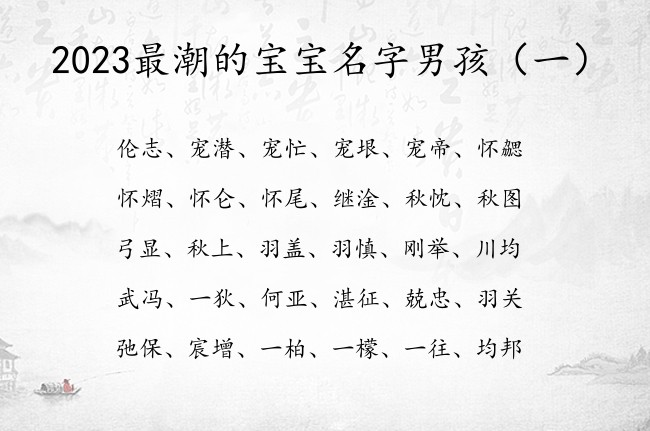 2023最潮的宝宝名字男孩（一）
伦志、宠潜、宠忙、宠垠、宠帝、怀勰
怀熠、怀仑、怀尾、继淦、秋忱、秋图
弓显、秋上、羽盖、羽慎、刚举、川均
武冯、一狄、何亚、湛征、兢忠、羽关
弛保、宸增、一柏、一檬、一往、均邦